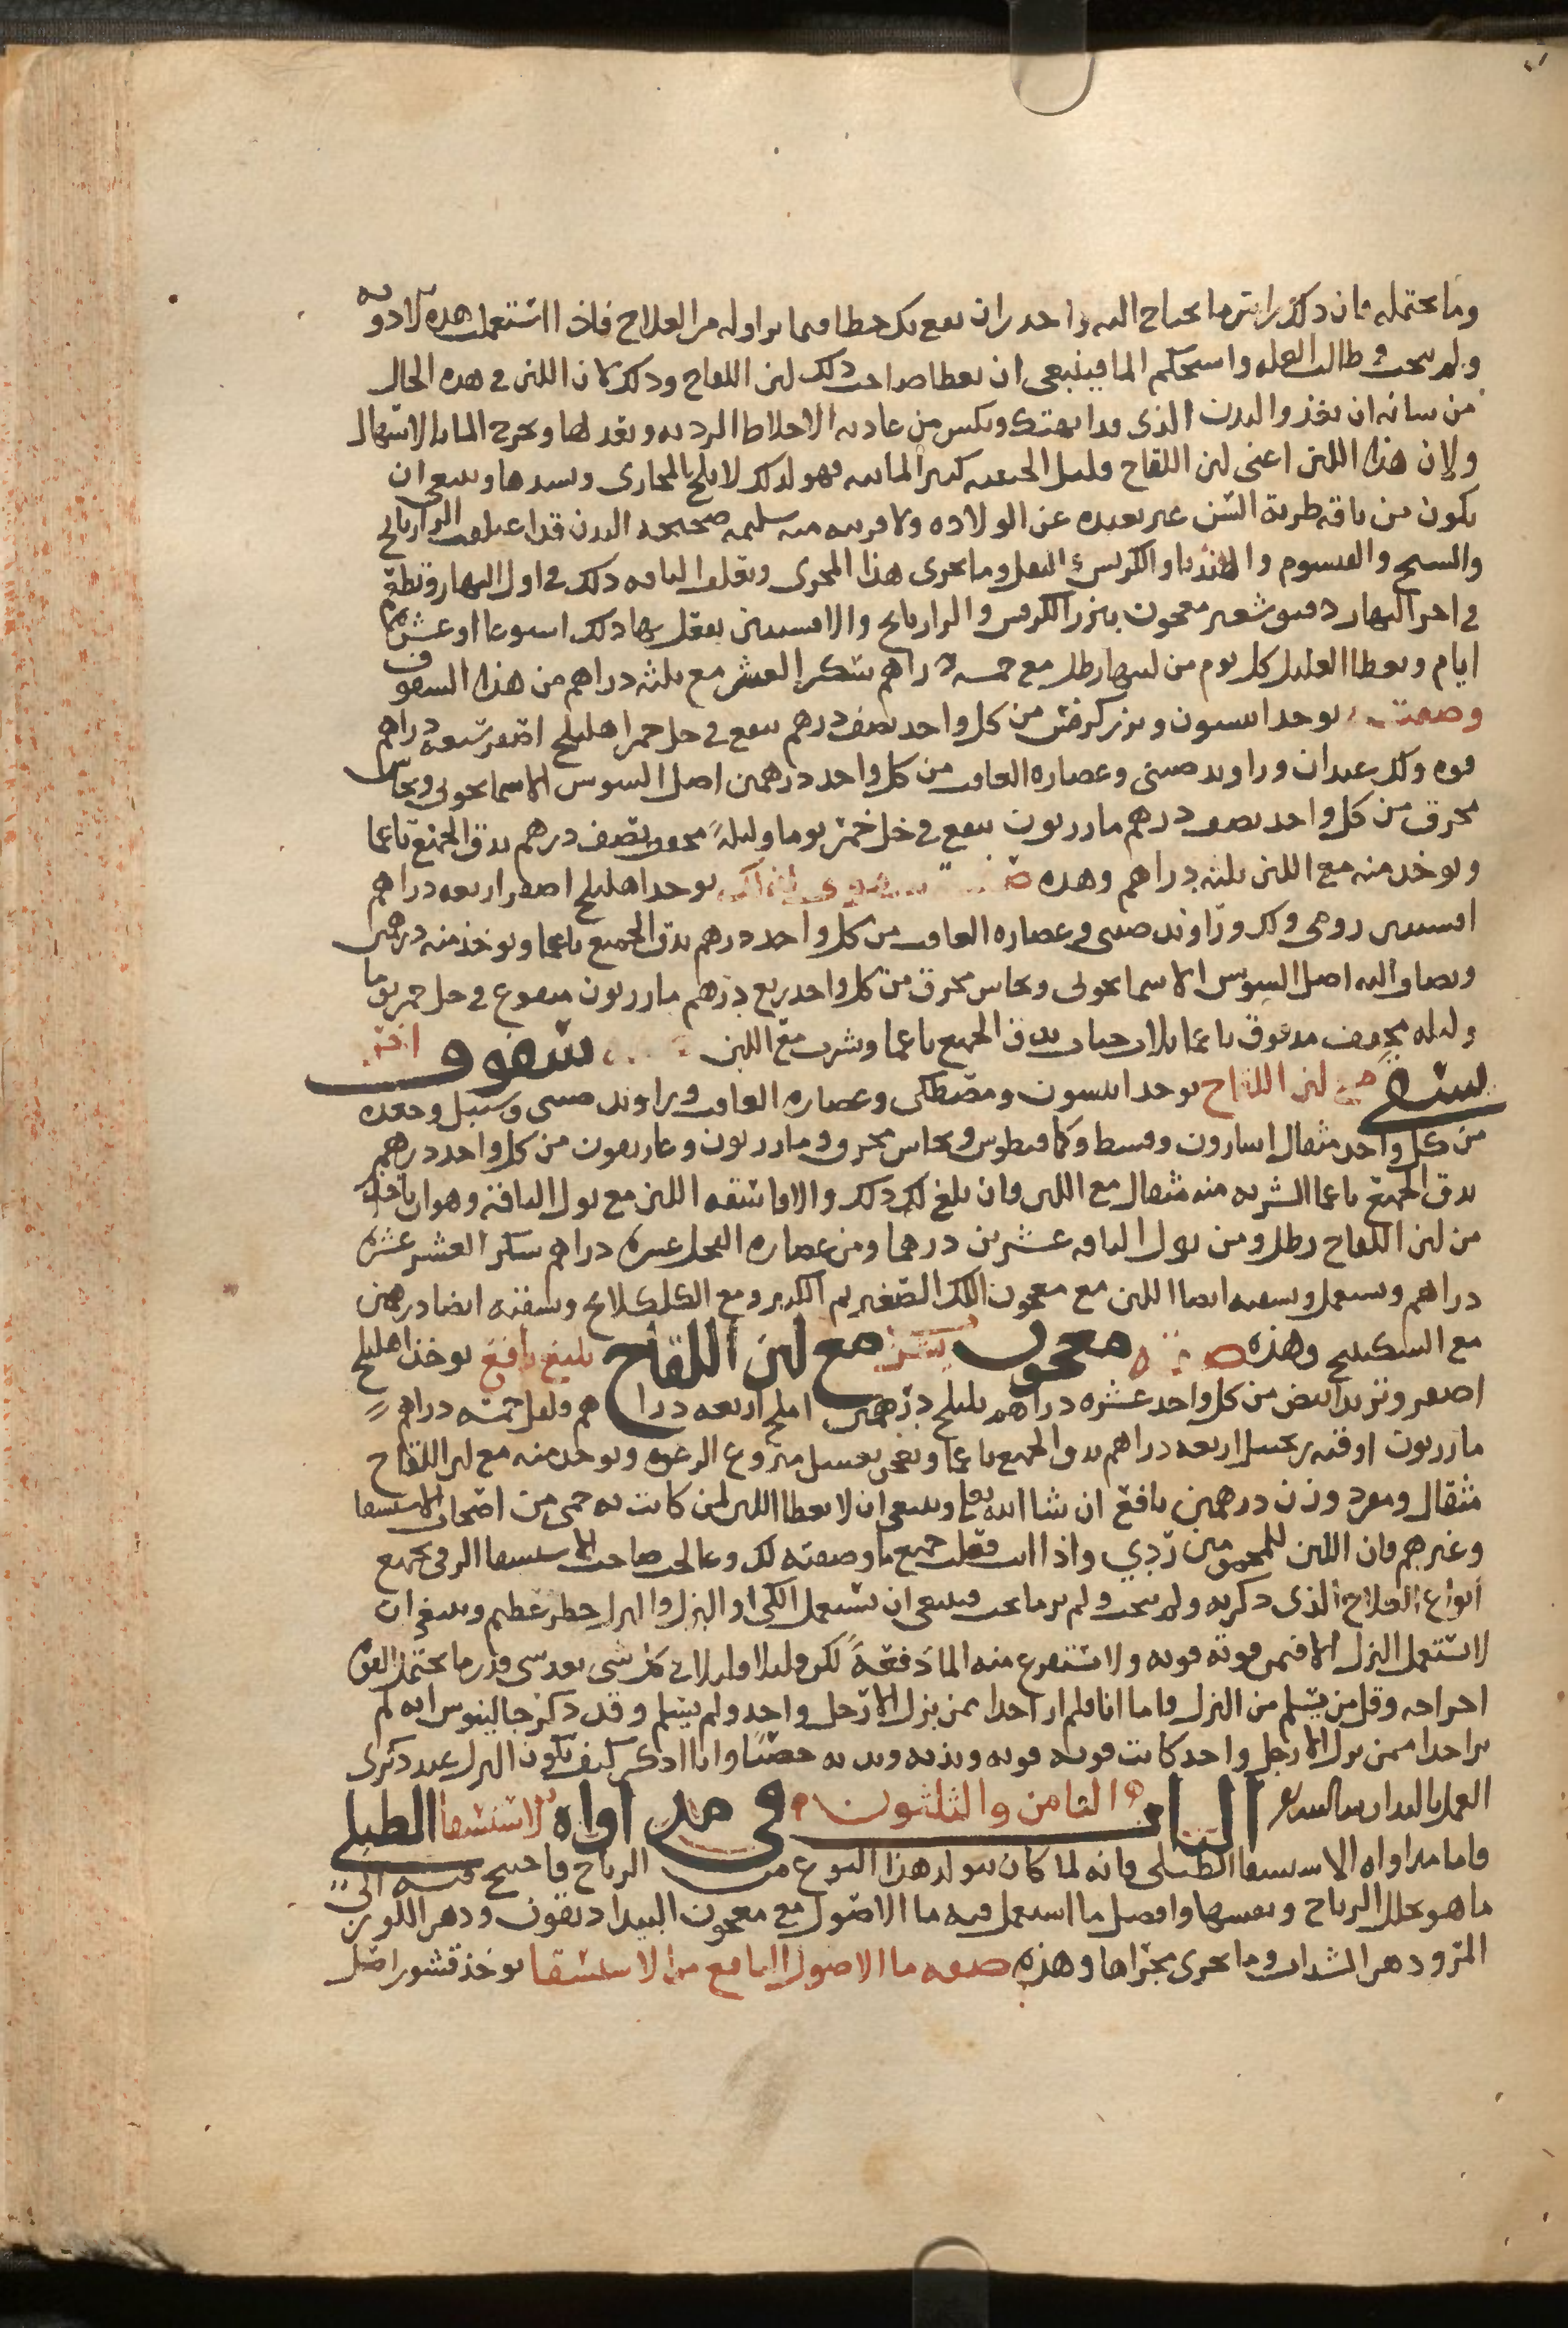 وما يحتمله فان ذلك اكثر ما يحتاج اليه واحذر ان يقع بك خطا فيما تزاوله من العلاج فاذا استعملت هذه الادويه
ولم ينجب وطالت العله واستحكم الما فينبغي ان يعطا صاحب ذلك لبن اللقاح وذلك لان اللبن في هذه الحال
من شانه ان يغذوا البدن الذي قد انهتك ويكسر من عاديه الاخلاط الرديه ويعدلها ويخرج الما بالاسهال
ولان هذا اللبن اعني لبن اللقاح قليل الجبنيه كثير المائيه فهو لذلك لا يلحج بالمجاري ويسدها وينبغي ان
يكون من ناقه طرية السن غير بعيده عن الولاده ولا قريبه منه سليمه صحيحه البدن قد اعتلفت الرازيانج
والشيح والقيسوم والهندبا والكرفس والبقل وما يجري هذا المجرى وتعلف الناقه ذلك في اول النهار ورطبة
في اخر النهار دقيق شعير معجون ببزر الكرفس والرازيانج والافسنتين يفعل بها ذلك اسبوعا او عشرة
ايام ويعطا العليل كل يوم من لبنها رطل مع خمسة دراهم سكر العشر مع ثلثه دراهم من هذا السفوف
وصفته يوخذ انيسون وبزر كرفس من كل واحد نصف درهم ينقع في خل خمر اهليلج اصفر سبعة دراهم
فوه ولك عيدان وراوند صيني وعصاره الغافت من كل واحد درهمين اصل السوس الاسمانجوني ونحاس
محرق من كل واحد نصف درهم مازريون ينقع في خل خمر يوما وليله مجفف نصف درهم يدق الجميع ناعما
ويوخذ منه مع اللبن ثلثه دراهم وهذه يوخذ اهليلج اصفر اربعه دراهم
افسنتين رومي ولك وراوند صيني وعصاره الغافت من كل واحد درهم يدق الجميع ناعما ويوخذ منه درهمين
ويضاف اليه اصل السوس الاسمانجوني ونحاس محرق من كل واحد ربع درهم مازريون منقوع في خل خمر يوما
وليله مجفف مدقوق ناعما ثلاث حبات يدق الجميع ناعما ويشرب مع اللبن سفوف اخر
يسقى مع لبن اللقاح يوخذ انيسون ومصطكى وعصاره الغافت وراوند صيني وسنبل وجعده
من كل واحد مثقال اسارون وقسط وكمافيطوس ونحاس محرق ومازريون وغاريقون من كل واحد درهم
يدق الجميع ناعما الشربه منه مثقال مع اللبن فان بلغ لك ذلك والا فاسقه اللبن مع بول الناقة وهو ان تاخذ
من لبن اللقاح رطل ومن بول الناقه عشرين درهما ومن عصاره الفجل عشره دراهم سكر العشر عشره
دراهم ويستعمل وتسقيه ايضا اللبن مع معجون اللك الصغير ثم الكبير ومع الكلكلانج وتسقيه ايضا درهمين
مع السكبينج وهذه صفة معجون يشرب مع لبن اللقاح بليغ نافع يوخذ اهليلج
اصفر وتربد ابيض من كل واحد عشره دراهم بليلج درهمين املج اربعه دراهم وفلفل خمسه دراهم
مازريون اوقيه زنجبيل اربعه دراهم يدق الجميع ناعما ويعجن بعسل منزوع الرغوه ويوخذ منه مع لبن اللقاح
مثقال ومفرد وزن درهمين نافع ان شا الله تعالى وينبغي ان لا يعطا اللبن لمن كانت به حمى من اصحاب الاستسقا
وغيرهم فان اللبن للمحمومين ردي واذا انت فعلت جميع ما وصفته لك وعالجت صاحب الاستسقا الزقي بجميع
انواع العلاج الذي ذكرته ولم ينجب ولم تر ما يجب فينبغي ان تستعمل الكي او البزل والبزل خطر عظيم وينبغي ان
لا تستعمل البزل الا فيمن قوته قويه ولا تستفرغ منه الما دفعة لكن قليلا قليلا في كل شي بعد شي قدر ما يحتمل القوه
اخراجه وقل من يسلم من البزل فاما انا فلم ار احدا ممن بزل الا رجل واحد ولم يسلم وقد ذكر جالينوس انه لم
ير احدا ممن بزل الا رجل واحد كانت قوته قويه وبدنه خصبا وانا اذكر كيف يكون البزل عند ذكري
العمل باليد ان شا الله تعالى الباب الثامن والثلثون في مداواه الاستسقا الطبلي
فاما مداواه الاستسقا الطبلي فانه لما كان يتولد هذا النوع من الرياح فاحتيج فيه الى
ما هو يحلل الرياح ويفشها وافضل ما استعمل فيه ما الاصول مع معجون البيداديقون ودهن اللوز
المر ودهن السذاب وما يجري مجراها وهذه صفه ما الاصول النافع من الاستسقا يوخذ قشور اصل